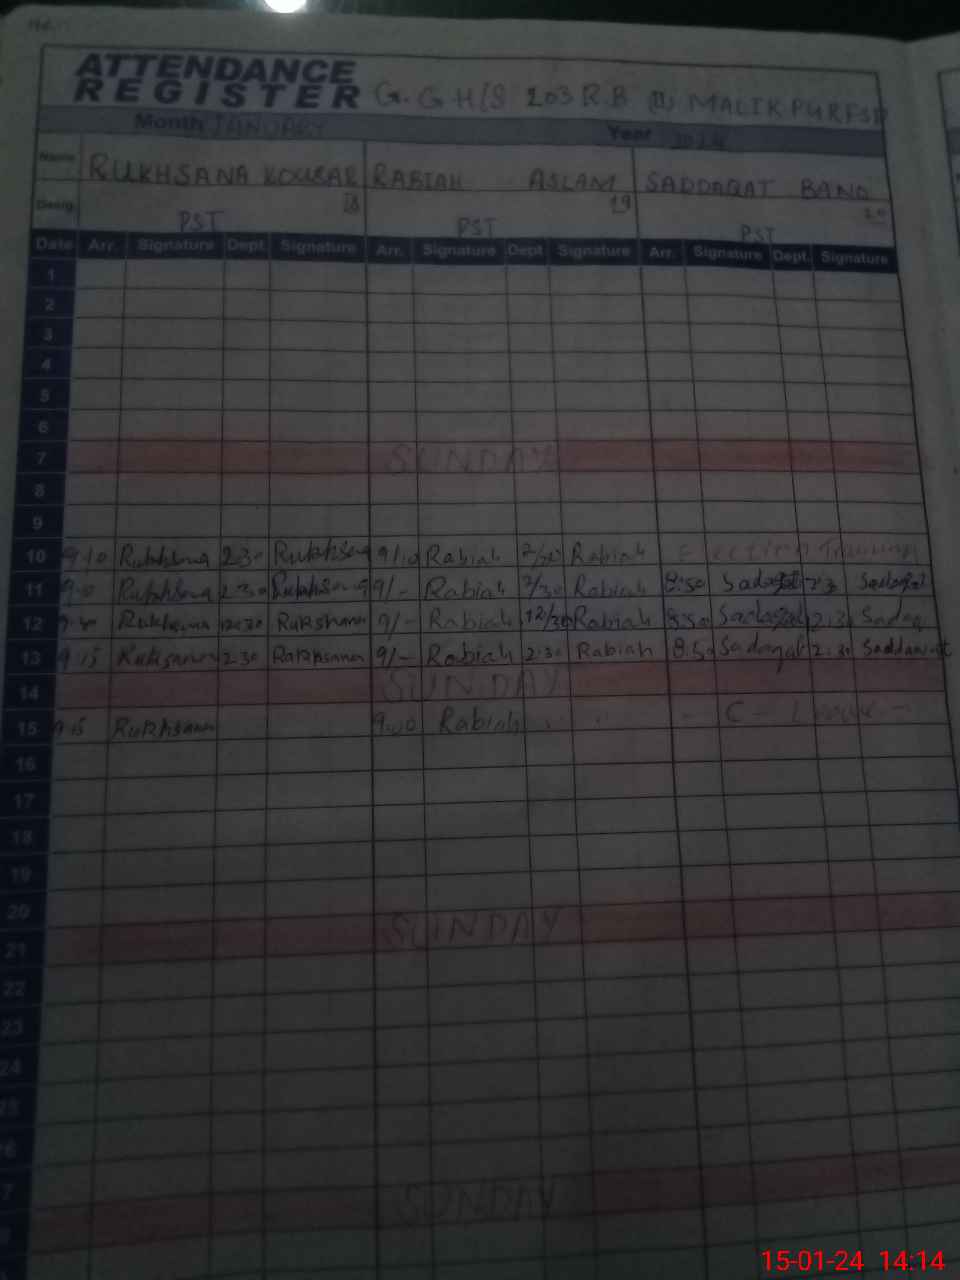 ATTENDANCE
REGISTER G.GH/S 203 R.B (II) MALIKPUR FSD
Month JANUARY Year 2024
Name RUKHSANA KOUSAR RABIAH ASLAM SADDAQAT BANO
Desig. PST 18 PST 19 PST 20
Date Arr. Signature Dept. Signature Arr. Signature Dept. Signature Arr. Signature Dept. Signature
1
2
3
4
5
6
7 SUNDAY
8
9
10 9.10 Rukhsana 2.30 Rukhsana 9/10 Rabiah 2/30 Rabiah Election Training
11 Rukhsana 2.30 Rukhsana 9/- Rabiah 2/30 Rabiah 8:50 Sadaqat Sadaqat
12 Rukhsana 12.30 Rukshana 9/- Rabiah 12/30 Rabiah 8:50 Sadaqat 12:30 Sadaq
13 9.15 Ruksanna 2.30 Rakhsana 9/- Rabiah 2:30 Rabiah 8.50 Sadaqat 2:30 Saddawat
14 SUNDAY
15 Rukhsana 9:00 Rabiah - C - Leave -
16
17
18
19
20
21 SUNDAY
22
23
24
25
SUNDAY
15-01-24 14:14